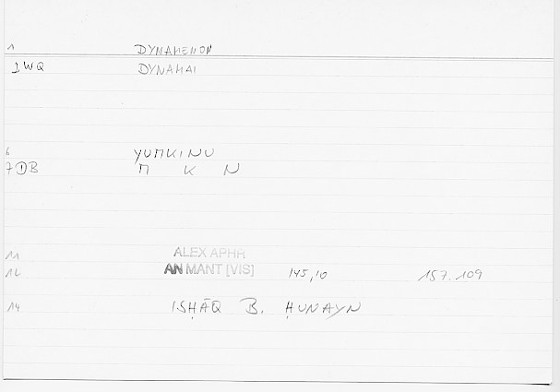 1 DYNAMENON
1 WQ DYNAMAI
6 YUMKINU
7 ① B M K N
11 ALEX APHR
12 AN MANT [VIS] 145,10 157.109
14 ISḤĀQ B. ḤUNAYN